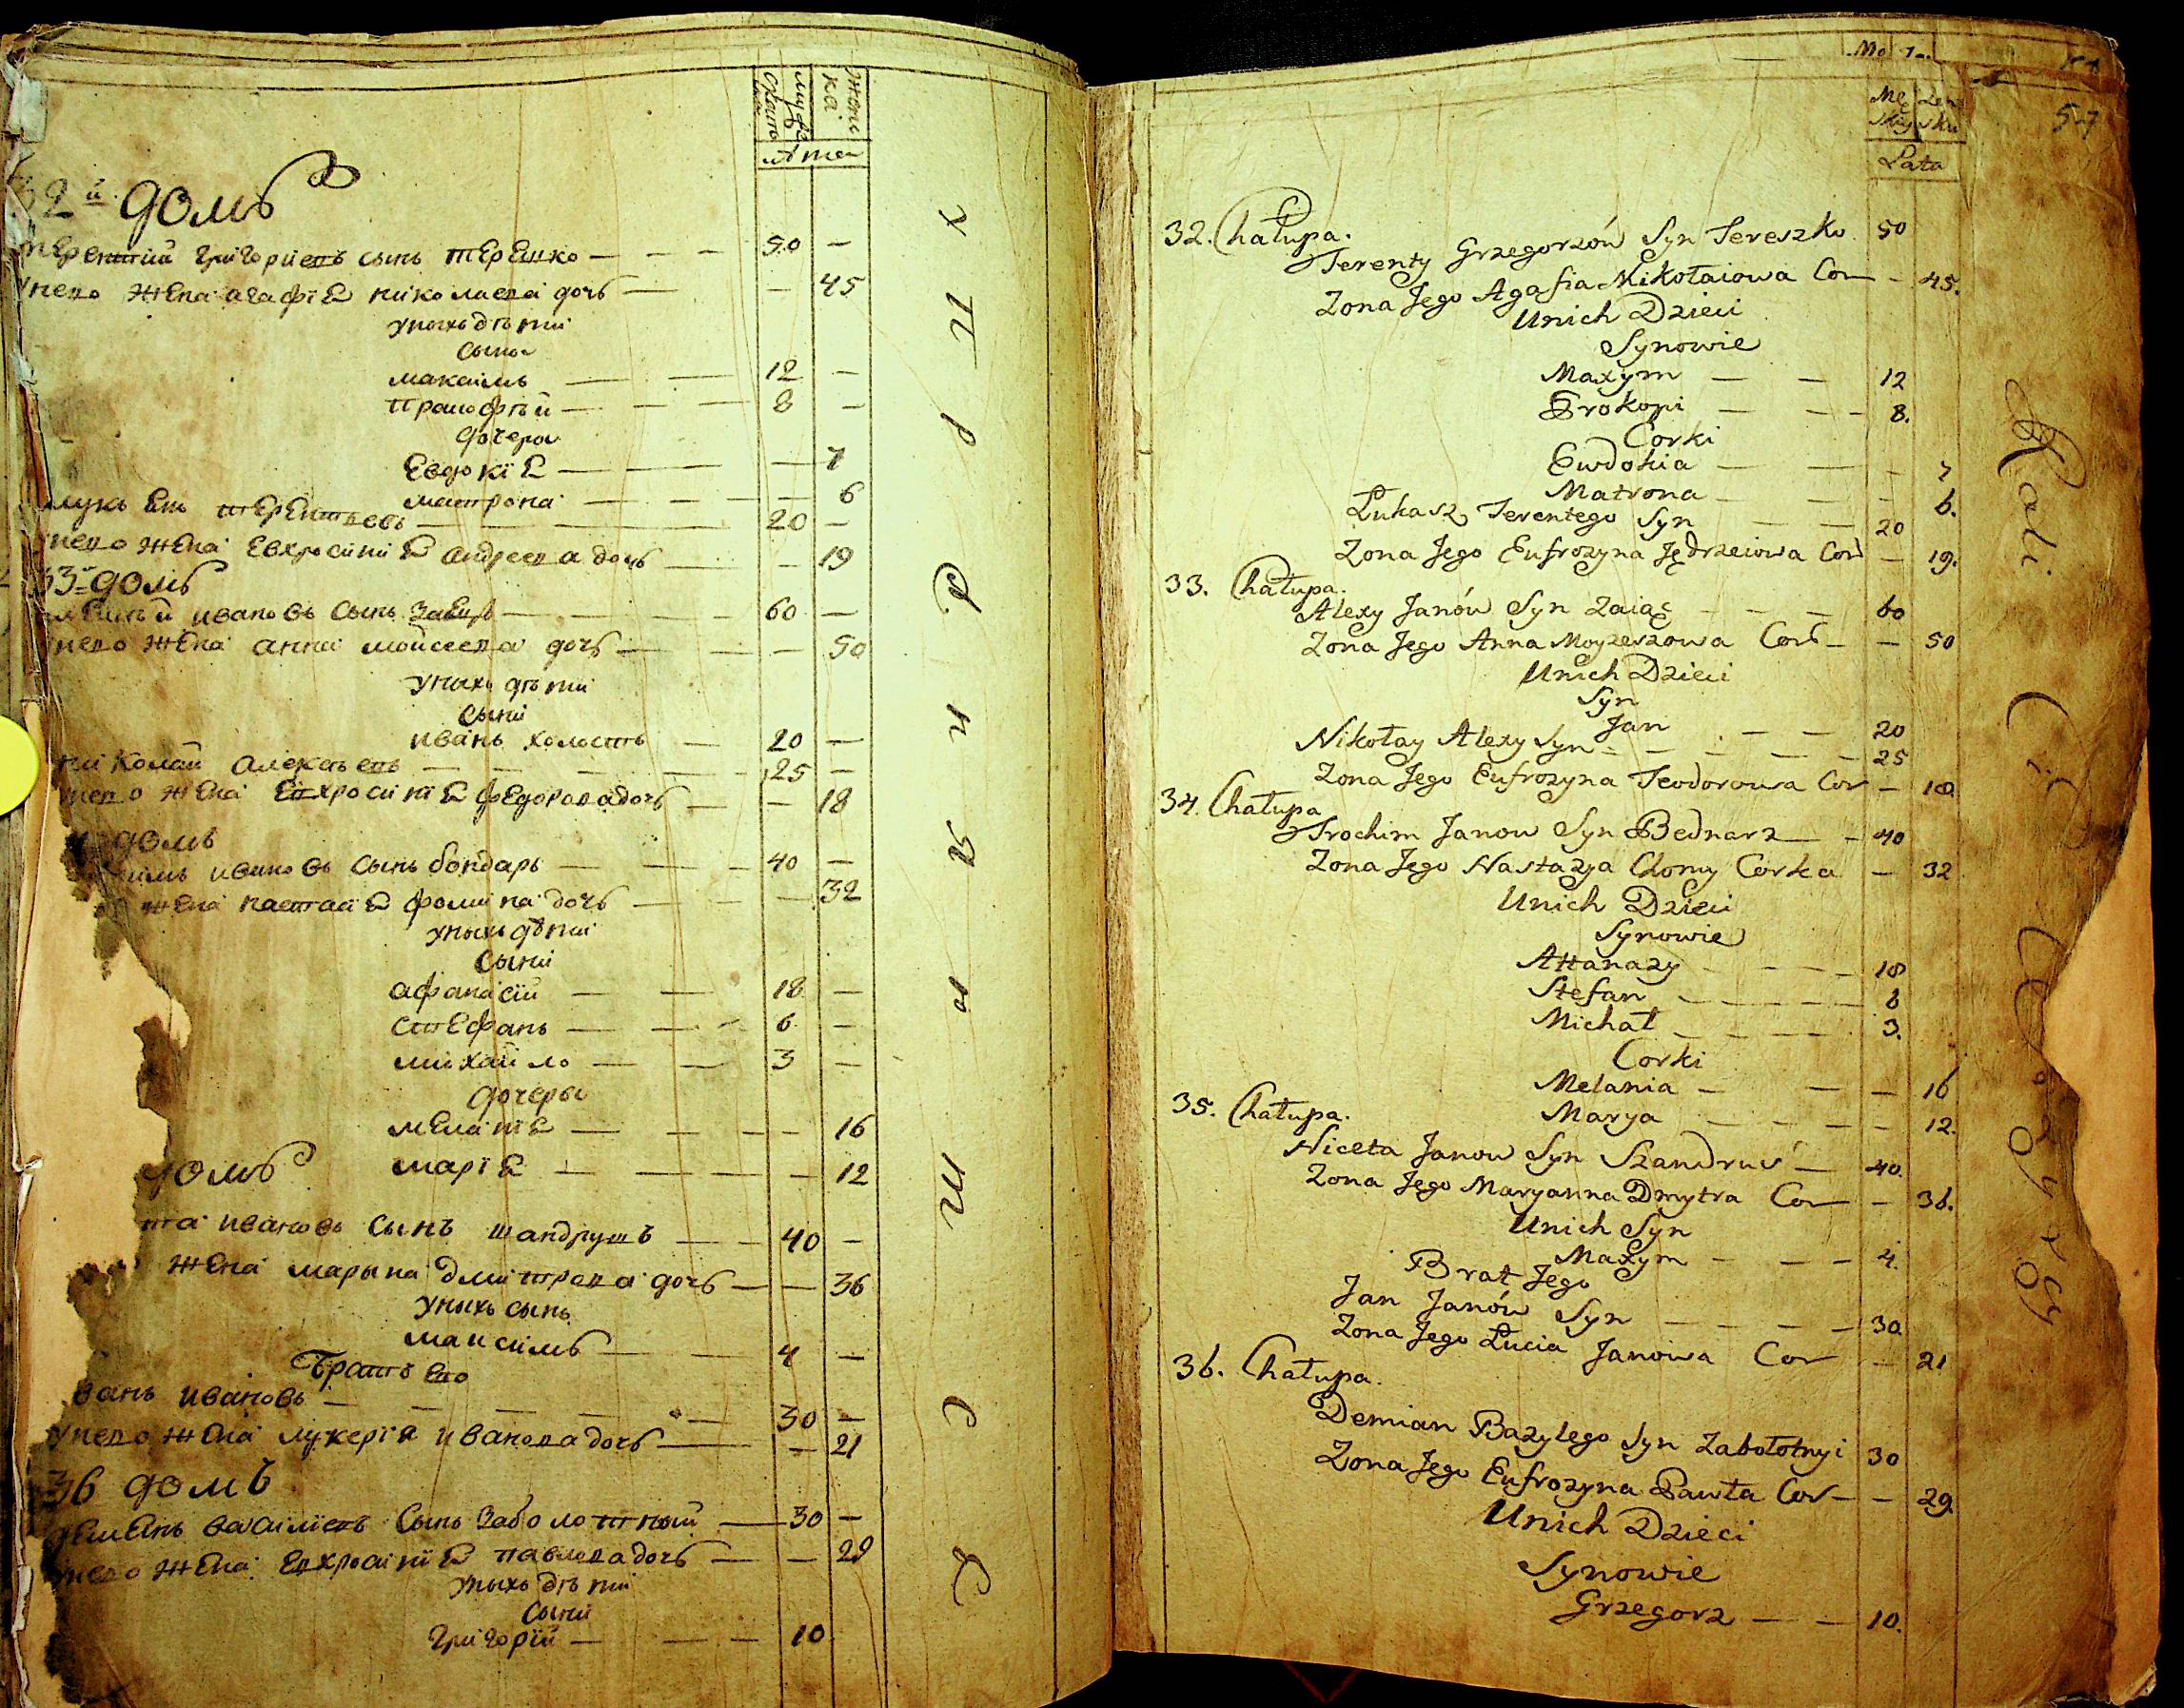 мужеска женска
лѣта
32й домъ
терентий григориевъ сынъ терешко — 50 —
унего жена агафiя николаева дочь — — 45
унихъ дѣти
сыны
максимъ — 12 —
прокофѣй — 8 —
дочеры
Евдокiя — — 7
матрона — — 6
терентьевъ — 20 —
унего жена Евхросинiя андреева дочь — — 19
33й домъ
ивановъ сынъ Заецъ — 60 —
унего жена анна мойсеева дочь — — 50
унихъ дѣти
сыни
иванъ холостъ — 20 —
николай алексѣевъ — 25 —
унего жена Евхросинiя федорова дочь — — 18
домъ
ивановъ сынъ бондарь — 40 —
жена настасiя фомина дочь — — 32
унихъ дѣти
сыни
афанасiй — 18 —
стефанъ — 6 —
михайло — 3 —
дочеры
меланiя — — 16
марiя — — 12
домъ
ивановъ сынъ шандрушъ — 40 —
жена марына дмитрева дочь — — 36
унихъ сынъ
максимъ — 4 —
братъ его
ивановъ — 30 —
унего жена лукерiя иванова дочь — — 21
36 домъ
демянъ василiевъ сынъ заболотный — 30 —
унего жена Евхросинiя павлова дочь — — 29
унихъ дѣти
сыни
григорiй — 10
57
Męzkiy Zensku
Lata
32. Chałupa.
Terenty Grzegorzów Syn Tereszko 50
Zona Jego Agafia Mikołaiowa Cor — 45.
Unich Dzieci
Synowie
Maxym — — 12
Prokopi — — 8.
Corki
Ewdokia — — 7
Matrona — — 6.
Łukasz Terentego Syn — — 20
Zona Jego Eufrozyna Jędrzeiowa Cor — 19.
33. Chałupa.
Alexy Janów Syn Zaiąc — — 60
Zona Jego Anna Moyzeszowa Cor — — 50
Unich Dzieci
Syn
Jan — — 20
Nikołay Alexy Syn — — 25
Zona Jego Eufrozyna Teodorowa Cor — 18
34. Chałupa
Trochim Janow Syn Bednarz — 40
Zona Jego Nastazya Chomy Corka — 32
Unich Dzieci
Synowie
Attanazy — — 18
Stefan — — 6
Michał — — 3.
Corki
Melania — — 16
Marya — — 12.
35. Chałupa.
Niceta Janow Syn Szandruś — 40.
Zona Jego Maryanna Dmytra Cor — 36.
Unich Syn
Maxym — — 4.
Brat Jego
Jan Janów Syn — — 30
Zona Jego Łucia Janowa Cor — 21
36. Chałupa.
Demian Bazylego Syn Zabołotnyi 30
Zona Jego Eufrozyna Pawła Cor — — 29.
Unich Dzieci
Synowie
Grzegorz — — 10.